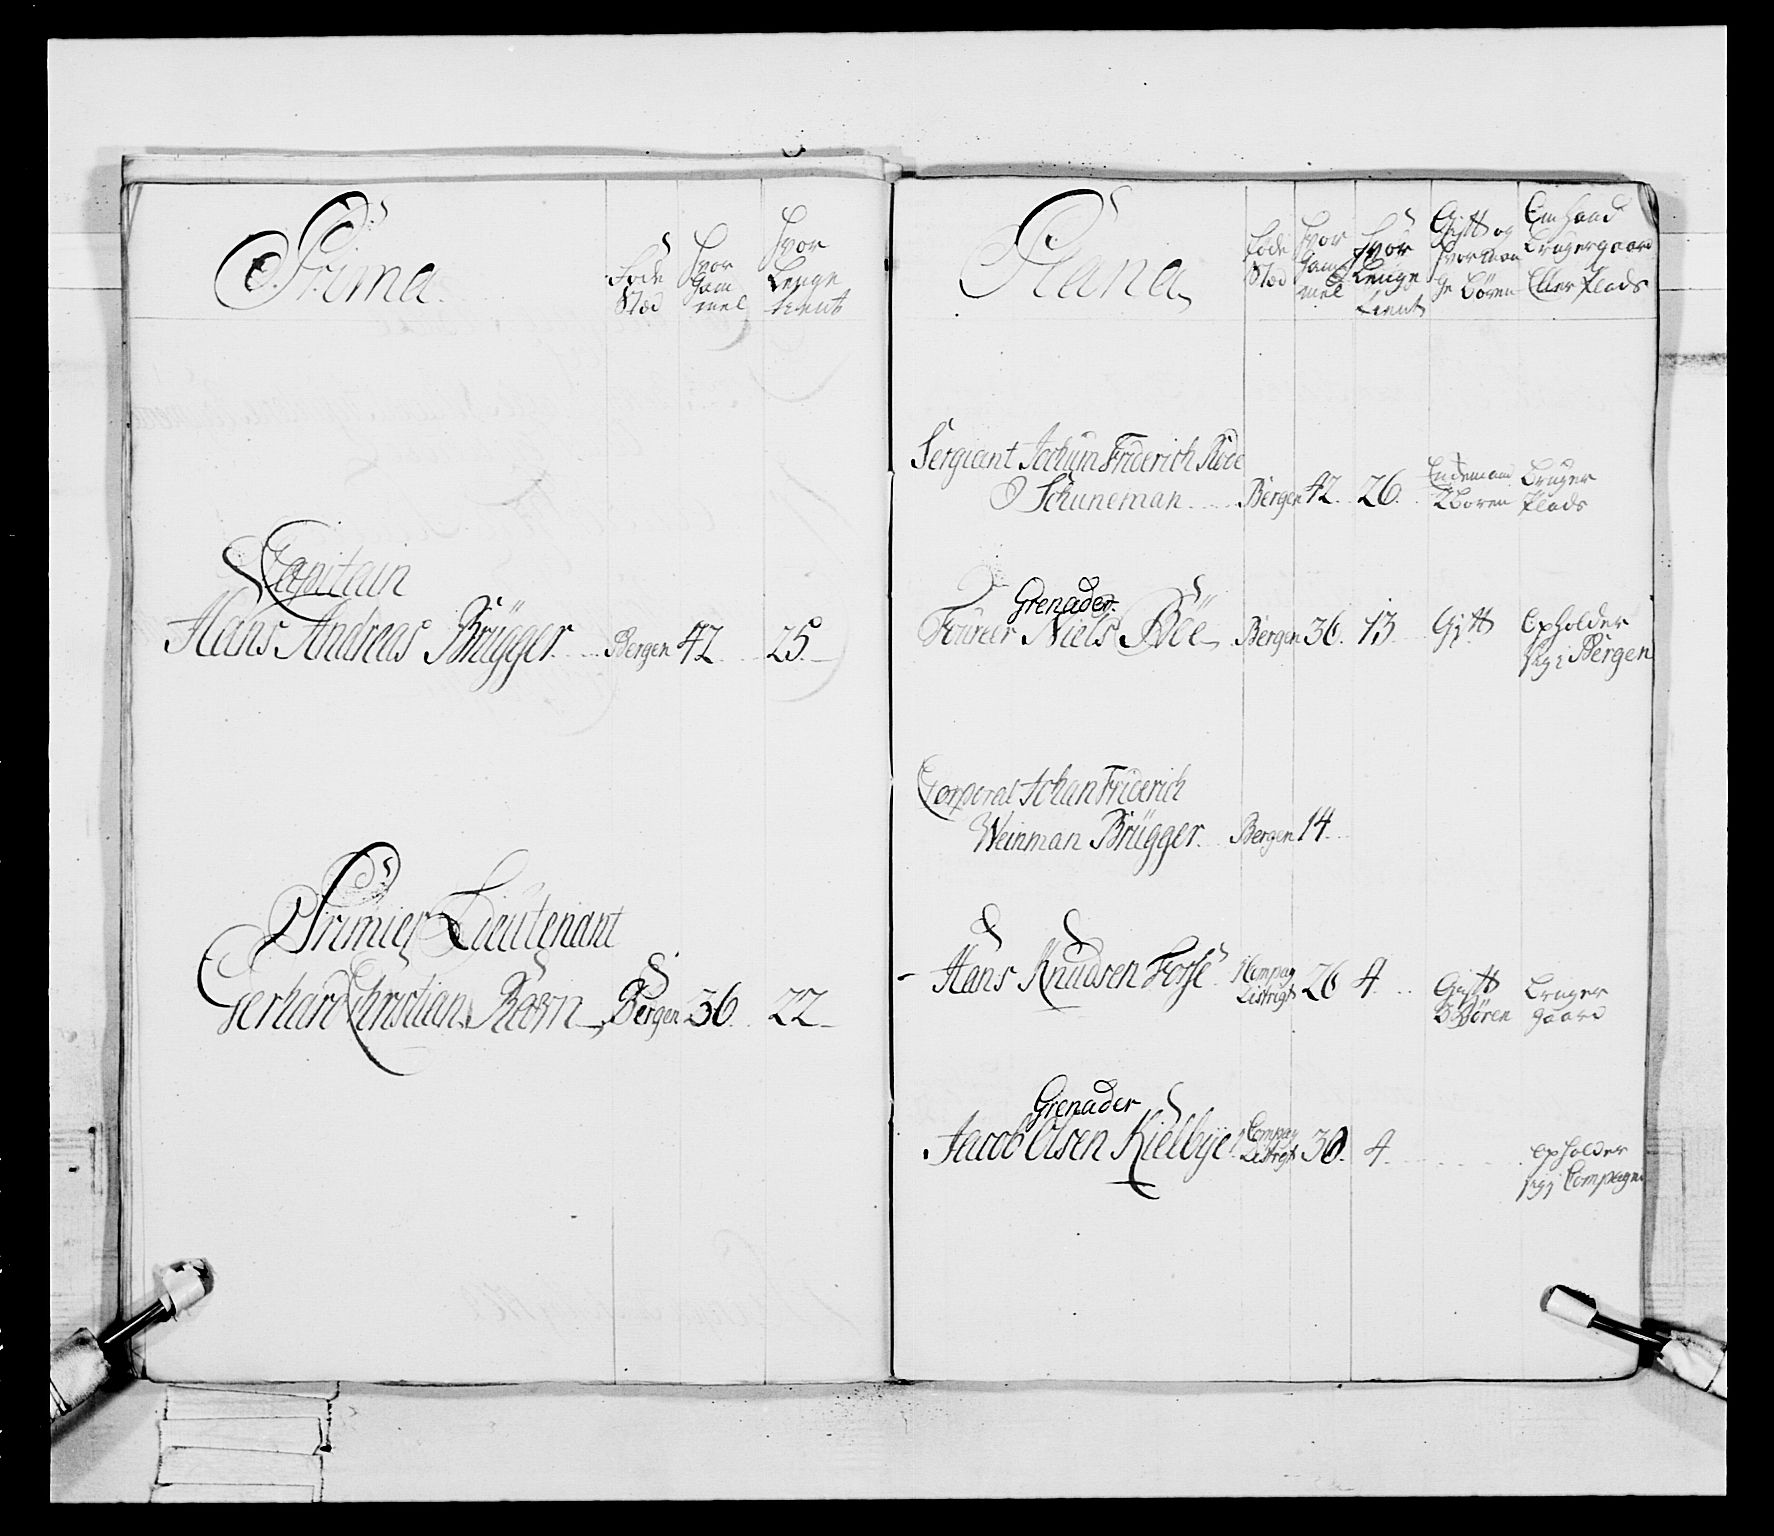 Prima
Føde
Stæd
Hvor
Gam
mel
Hvor
Lenge
tient
Capitain
Hans Andreas Brügger Bergen 42 25
Primier Lieutenant
Gerhard Christian Bergen 36 22
Plana
Føde
Stæd
Hvor
Gam
mel
Hvor
Lenge
tient
Gift og
Hvor Man
ge Børen
Em hand
Bruger gaard
Eller Plads
Sergiant Jochum Friderich
Schuneman Bergen 42 26
Enckemand
Børen
Bruger
Plads
Grenader
Fourier Niels Böe Bergen 36 13 Gift
Opholder
sig i Bergen
Corporal Johan Friderich
Weinman Brügger Bergen 14
Hans Knudsen Compag
Distrigt 26 4
Gift
3 Børen
Bruger
gaard
Grenader
Jacob Olsen Kielbye Compag
Distrigt 30 4
Opholder
sig i Compagni